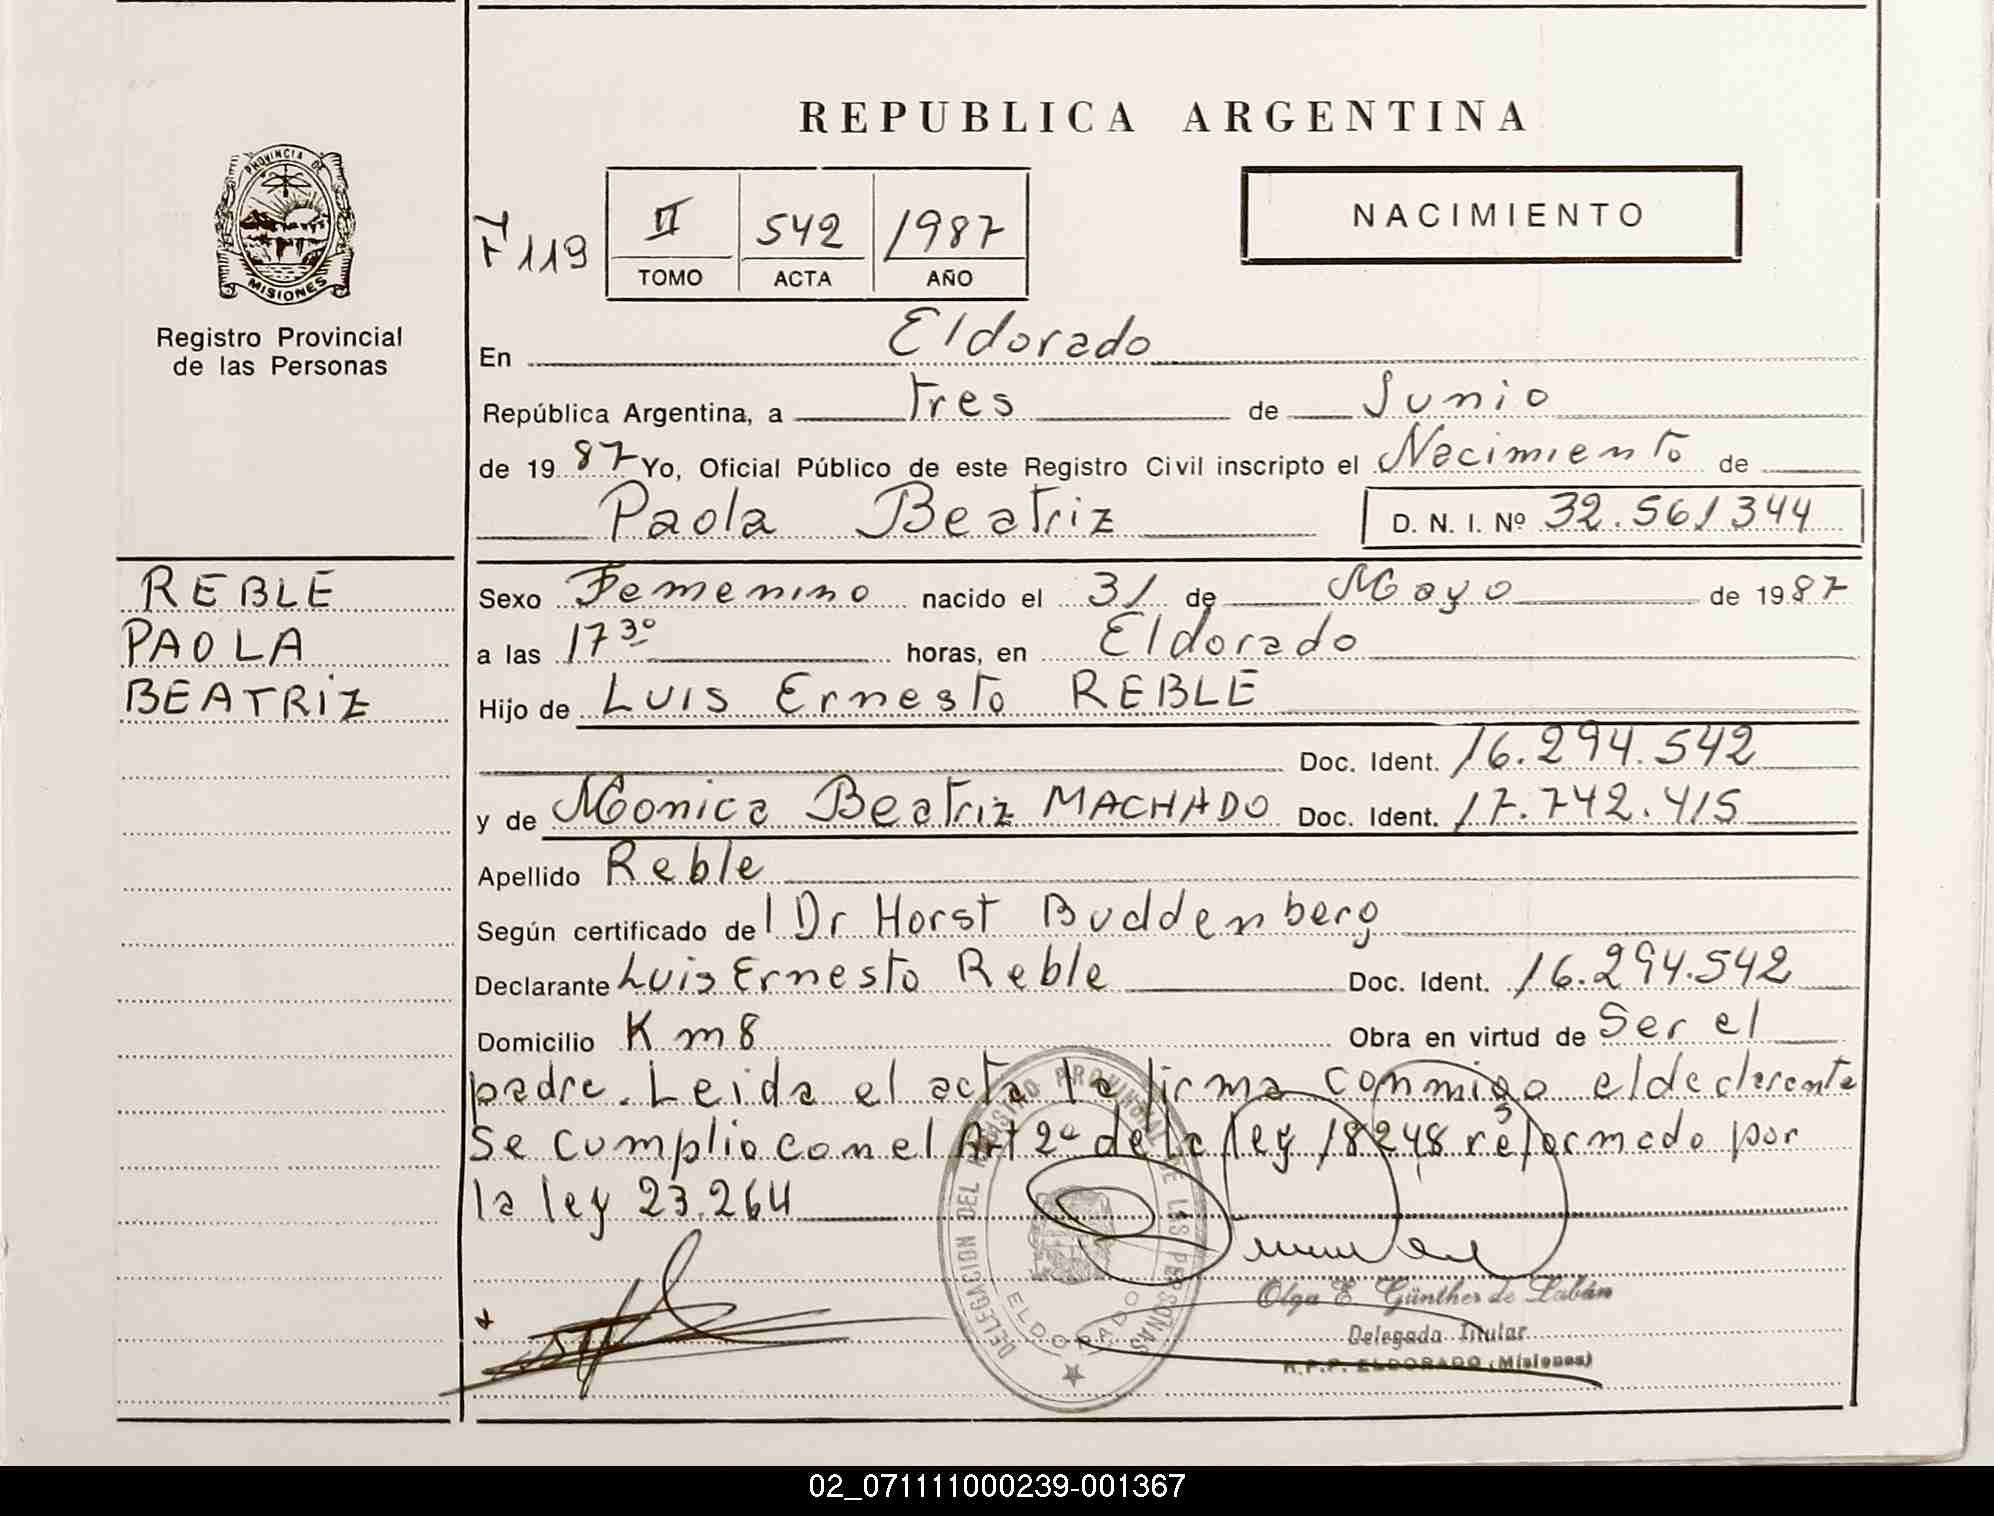 REPUBLICA ARGENTINA
PROVINCIA DE
MISIONES
Registro Provincial
de las Personas
F 119
II 542 1987
TOMO ACTA AÑO
NACIMIENTO
En Eldorado
República Argentina, a tres de Junio
de 1987 Yo, Oficial Público de este Registro Civil inscripto el Nacimiento de
Paola Beatriz D. N. I. Nº 32.561344
REBLE
PAOLA
BEATRIZ
Sexo Femenino nacido el 31 de Mayo de 1987
a las 17 30 horas, en Eldorado
Hijo de LUIS Ernesto REBLE
Doc. Ident. 16.294.542
y de Monica Beatriz MACHADO Doc. Ident. 17.742.415
Apellido Reble
Según certificado del Dr Horst Buddenberg
Declarante Luis Ernesto Reble Doc. Ident. 16.294.542
Domicilio Km 8 Obra en virtud de Ser el
padre. Leida el acta la firma conmigo el declarante
Se cumplio con el Art 2º de la ley 18248 reformado por
la ley 23.264
DELEGACION DEL REGISTRO PROVINCIAL DE LAS PERSONAS
ELDORADO
Olga E. Günther de Labán
Delegada Titular
R.P.P. ELDORADO (Misiones)
02_071111000239-001367